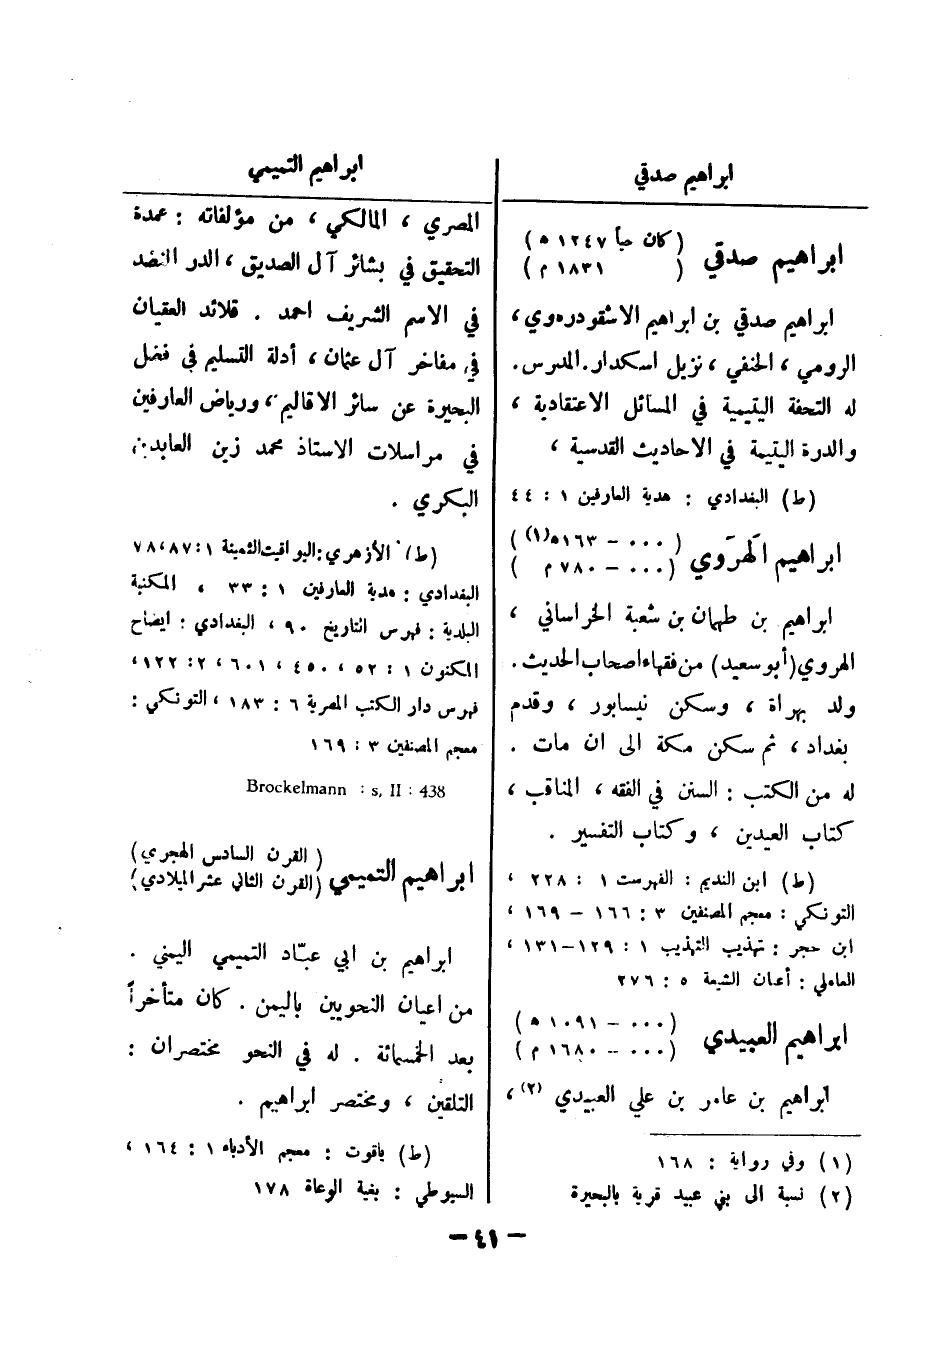 ابراهيم صدقي
ابراهيم صدقي (كان حياً ١٢٤٧ ه)
( ١٨٣١ م)
ابراهيم صدقي بن ابراهيم الاشقودره‌وي ،
الرومي ، الحنفي ، نزيل اسكدار. المدرس.
له التحفة اليتيمية في المسائل الاعتقادية ،
والدرة اليتيمة في الاحاديث القدسية ،
(ط) البغدادي : هدية العارفين ١ : ٤٤
ابراهيم الهَرَوي (٠٠٠ – ١٦٣ه(١))
(٠٠٠ – ٧٨٠ م )
ابراهيم بن طهمان بن شعبة الخراساني ،
الهروي (أبو سعيد) من فقهاء اصحاب الحديث.
ولد بهراة ، وسكن نيسابور ، وقدم
بغداد ، ثم سكن مكة الى ان مات .
له من الكتب : السنن في الفقه ، المناقب ،
كتاب العيدين ، وكتاب التفسير .
(ط) ابن النديم : الفهرست ١ : ٢٢٨ ،
التونكي : معجم المصنفين ٣ : ١٦٦ – ١٦٩ ،
ابن حجر : تهذيب التهذيب ١ : ١٢٩–١٣١ ،
العاملي : أعيان الشيعة ٥ : ٢٧٦
ابراهيم العبيدي (٠٠٠ – ١٠٩١ ه )
(٠٠٠ – ١٦٨٠ م )
ابراهيم بن عامر بن علي العبيدي (٢) ،
(١) وفي رواية : ١٦٨
(٢) نسبة الى بني عبيد قرية بالبحيرة
ابراهيم التميمي
المصري ، المالكي ، من مؤلفاته : عمدة
التحقيق في بشائر آل الصديق ، الدر النضد
في الاسم الشريف احمد . قلائد العقيان
في مفاخر آل عثمان ، أدلة التسليم في فضل
البحيرة عن سائر الاقاليم ، ورياض العارفين
في مراسلات الاستاذ محمد زين العابدين
البكري .
(ط) الأزهري : اليواقيت الثمينة ١ : ٧٨،٨٧
البغدادي : هدية العارفين ١ : ٣٣ ، المكتبة
البلدية : فهرس التاريخ ٩٠ ، البغدادي : ايضاح
المكنون ١ : ٥٢ ، ٤٥٠ ، ٦٠١ ، ٢ : ١٢٢،
فهرس دار الكتب المصرية ٦ : ١٨٣ ، التونكي :
معجم المصنفين ٣ : ١٦٩
Brockelmann : s, II : 438
ابراهيم التميمي (القرن السادس الهجري)
(القرن الثاني عشر الميلادي)
ابراهيم بن ابي عبّاد التميمي اليمني .
من اعيان النحويين باليمن . كان متأخراً
بعد الخمسمائة . له في النحو مختصران :
التلقين ، ومختصر ابراهيم .
(ط) ياقوت : معجم الأدباء ١ : ١٦٤ ،
السيوطي : بغية الوعاة ١٧٨
– ٤١ –